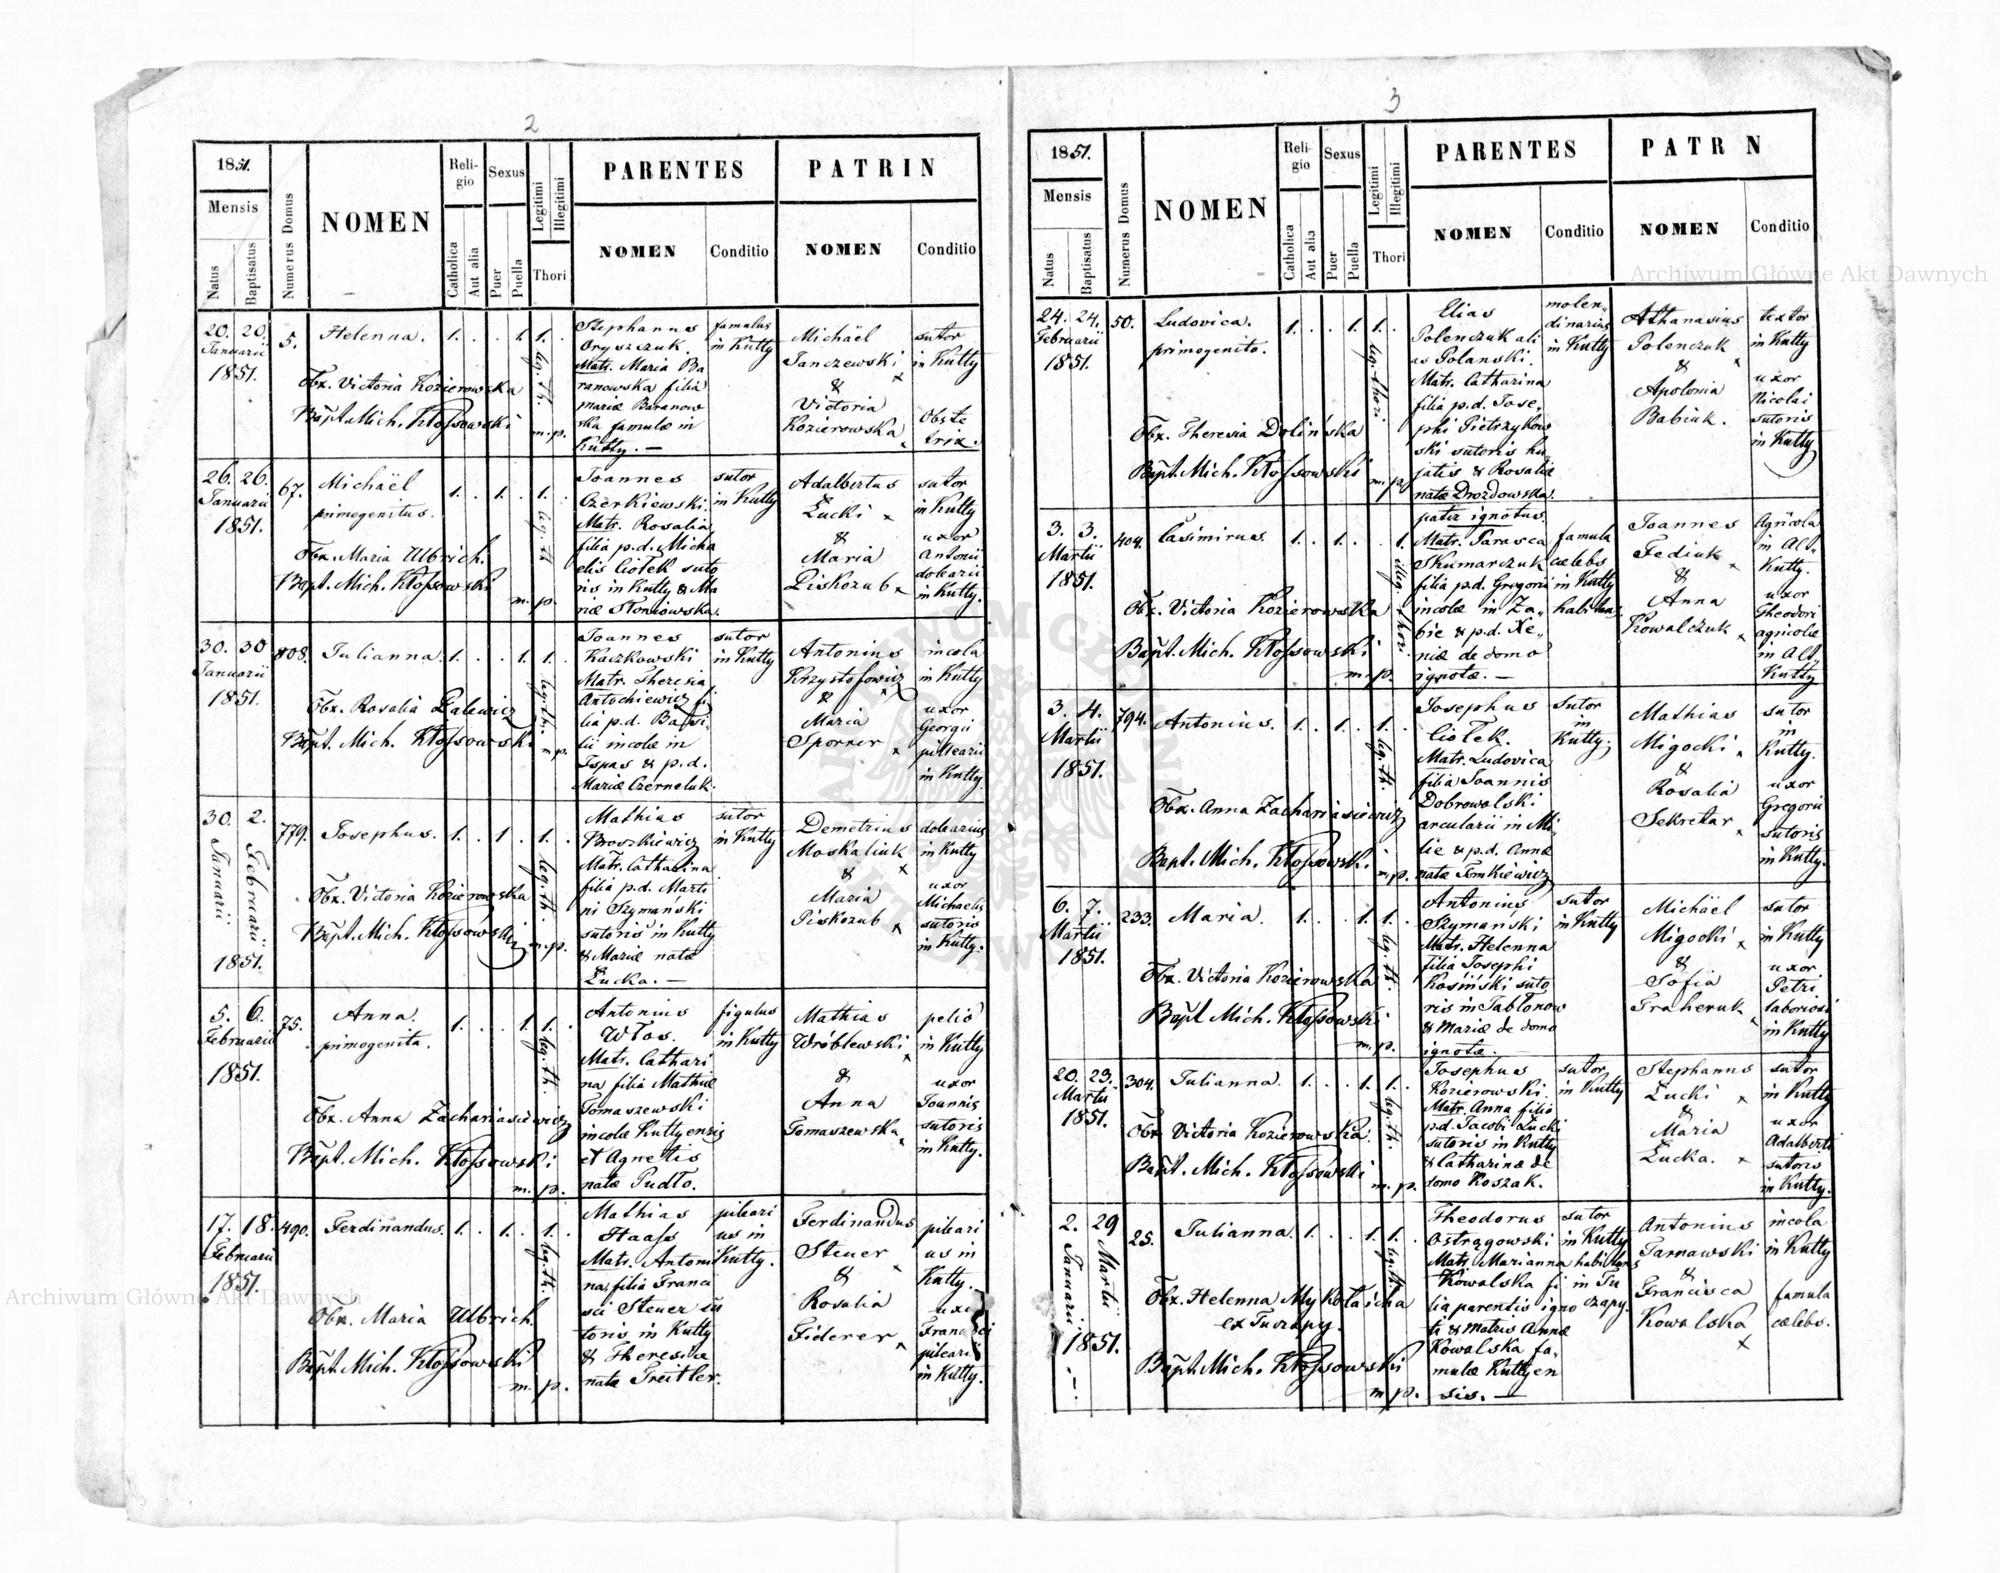 2
1851.
Mensis
Natus
Baptisatus
Numerus Domus
NOMEN
Religio
Catholica
Aut alia
Sexus
Puer
Puella
Legitimi
Illegitimi
Thori
PARENTES
NOMEN
Conditio
PATRIN
NOMEN
Conditio
20. 20.
Januarii
1851.
5.
Helenna.
1. . . 1. 1. .
leg. th.
Obx. Victoria Kozierowska
Bapt. Mich. Kłossowski
m. p.
Stephanus
Oryszczuk.
Matr. Maria Ba
ranowska filia
Mariæ Baranow
ska famulæ in
Kutty. —
famulus
in Kutty
Michaël
Janczewski
&
Victoria
Kozierowska
sutor
in Kutty
Obste
trix.
26. 26.
Januarii
1851.
67.
Michaël
primogenitus.
1. . 1. . 1. .
leg. th.
Obx. Maria Ulbrich.
Bapt. Mich. Kłossowski
m. p.
Joannes
Czerkiewski.
Matr. Rosalia
filia p.d. Micha
elis Ciołek suto
ris in Kutty & Ma
riæ Stoniowska.
sutor
in Kutty
Adalbertus
Łucki x
&
Maria
Piskozub x
sutor
in Kutty
uxor
Antonii
dolearii
in Kutty.
30. 30
Januarii
1851.
808.
Julianna.
1. . . 1. 1. .
leg. th.
Obx. Rosalia Palewicz
Bapt. Mich. Kłossowski
m. p.
Joannes
Kaczkowski
Matr. Theresia
Antochiewicz fi
lia p.d. Basi
lii incolæ in
Ispas & p.d.
Mariæ Czerneluk.
sutor
in Kutty
Antonius
Krzysztofowicz
&
Maria
Sporner x
incola
in Kutty
uxor
Georgii
pillearii
in Kutty.
30. 2.
Januarii
Februarii
1851.
779.
Josephus.
1. . 1. . 1. .
leg. th.
Obx. Victoria Kozierowska
Bapt. Mich. Kłossowski
m. p.
Mathias
Broszkiewicz
Matr. Catharina
filia p.d. Marti
ni Szymański
sutoris in Kutty
& Mariæ natæ
Łucka. —
sutor
in Kutty
Demetrius
Moskaliuk x
&
Maria
Piskozub x
dolearius
in Kutty
uxor
Michaelis
sutoris
in Kutty.
5. 6.
Februarii
1851.
75.
Anna.
primogenita.
1. . . 1. 1. .
leg. th.
Obx. Anna Zachariasiewicz
Bapt. Mich. Kłossowski
m. p.
Antonius
Włos.
Matr. Cathari
na filia Mathiæ
Tomaszewski
incolæ Kuttyensis
et Agnetis
natæ Pudło.
figulus
in Kutty
Mathias
Wróblewski x
&
Anna
Tomaszewska x
pelio
in Kutty
uxor
Joannis
sutoris
in Kutty.
17. 18.
Februarii
1851.
490.
Ferdinandus.
1. . 1. . 1. .
leg. th.
Obx. Maria Ulbrich.
Bapt. Mich. Kłossowski
m. p.
Mathias
Haass
Matr. Antoni
na filia Franci
sci Steuer su
toris in Kutty
& Theresiæ
natæ Treitler.
pileari
us in
Kutty.
Ferdinandus
Steuer x
&
Rosalia
Fiderer x
pileari
us in
Kutty.
uxor
Francisci
pilearii
in Kutty.
3
1851.
Mensis
Natus
Baptisatus
Numerus Domus
NOMEN
Religio
Catholica
Aut alia
Sexus
Puer
Puella
Legitimi
Illegitimi
Thori
PARENTES
NOMEN
Conditio
PATR N
NOMEN
Conditio
24. 24.
Februarii
1851.
50.
Ludovica.
primogenita.
1. . . 1. 1. .
leg. thori.
Obx. Theresia Dolińska
Bapt. Mich. Kłossowski
m. p.
Elias
Polenczuk ali
as Polanski.
Matr. Catharina
filia p.d. Jose„
phi Pietrzykow
ski sutoris hu
jatis & Rosaliæ
natæ Drozdowska.
molen„
dinarius
in Kutty
Athanasius
Polenczuk x
&
Apolonia
Babiuk.
textor
in Kutty
uxor
Nicolai
sutoris
in Kutty
3. 3.
Martii
1851.
404.
Casimirus.
1. . 1. . . 1.
illeg. thori
Obx. Victoria Kozierowska
Bapt. Mich. Kłossowski
m. p.
pater ignotus.
Matr. Parasca
Skumarczuk
filia p.d. Gregorii
incolæ in Ża„
bie & p.d. Xe„
niæ de domo
ignotæ. —
famula
cælebs
in Kutty
habitans
Joannes
Fediuk x
&
Anna
Kowalczuk x
Agricola
in Alt„
Kutty.
uxor
Theodori
agricolæ
in Alt
Kutty
3. 4.
Martii
1851.
794.
Antonius.
1. . 1. . 1. .
leg. th.
Obx. Anna Zachariasiewicz
Bapt. Mich. Kłossowski
m. p.
Josephus
Ciołek.
Matr. Ludovica
filia Joannis
Dobrowolski
arcularii in Mi„
lie & p.d. Annæ
natæ Tomkiewicz
sutor
in
Kutty.
Mathias
Migocki x
&
Rosalia
Sekretar x
sutor
in
Kutty.
uxor
Gregorii
sutoris
in Kutty.
6. 7.
Martii
1851.
233.
Maria.
1. . . 1. 1. .
leg. th.
Obx. Victoria Kozierowska
Bapt. Mich. Kłossowski
m. p.
Antonius
Szymański
Matr. Helenna
filia Josephi
Kosiński suto
ris in Jabłonow
& Mariæ de domo
ignotæ. —
sutor
in Kutty
Michäel
Migocki x
&
Sofia
Traheruk x
sutor
in Kutty
uxor
Petri
laboriosi
in Kutty
20. 23.
Martii
1851.
304.
Julianna.
1. . . 1. 1. .
leg. th.
Obx. Victoria Kozierowska.
Bapt. Mich. Kłossowski
m. p.
Josephus
Kozierowski.
Matr. Anna filia
p.d. Jacobi Łucki
sutoris in Kutty
& Catharinæ de
domo Koszak.
sutor
in Kutty
Stephanus
Łucki x
&
Maria
Łucka. x
sutor
in Kutty
uxor
Adalberti
sutoris
in Kutty.
2. 29
Januarii
Martii
1851.
25.
Julianna.
1. . . 1. 1. .
leg. th.
Obx. Helenna Mykołaicha
ex Tuczapy.
Bapt. Mich. Kłossowski
m. p.
Theodorus
Ostrągowski
Matr. Marianna
Kowalska fi
lia parentis igno
ti & Matris Annæ
Kowalska fa„
mulæ Kuttyen
sis. —
sutor
in Kutty
habitans
in Tu
czapy.
Antonius
Tarnawski
&
Francisca
Kowalska
x
incola
in Kutty
famula
cælebs.
Archiwum Główne Akt Dawnych
Archiwum Główne Akt Dawnych